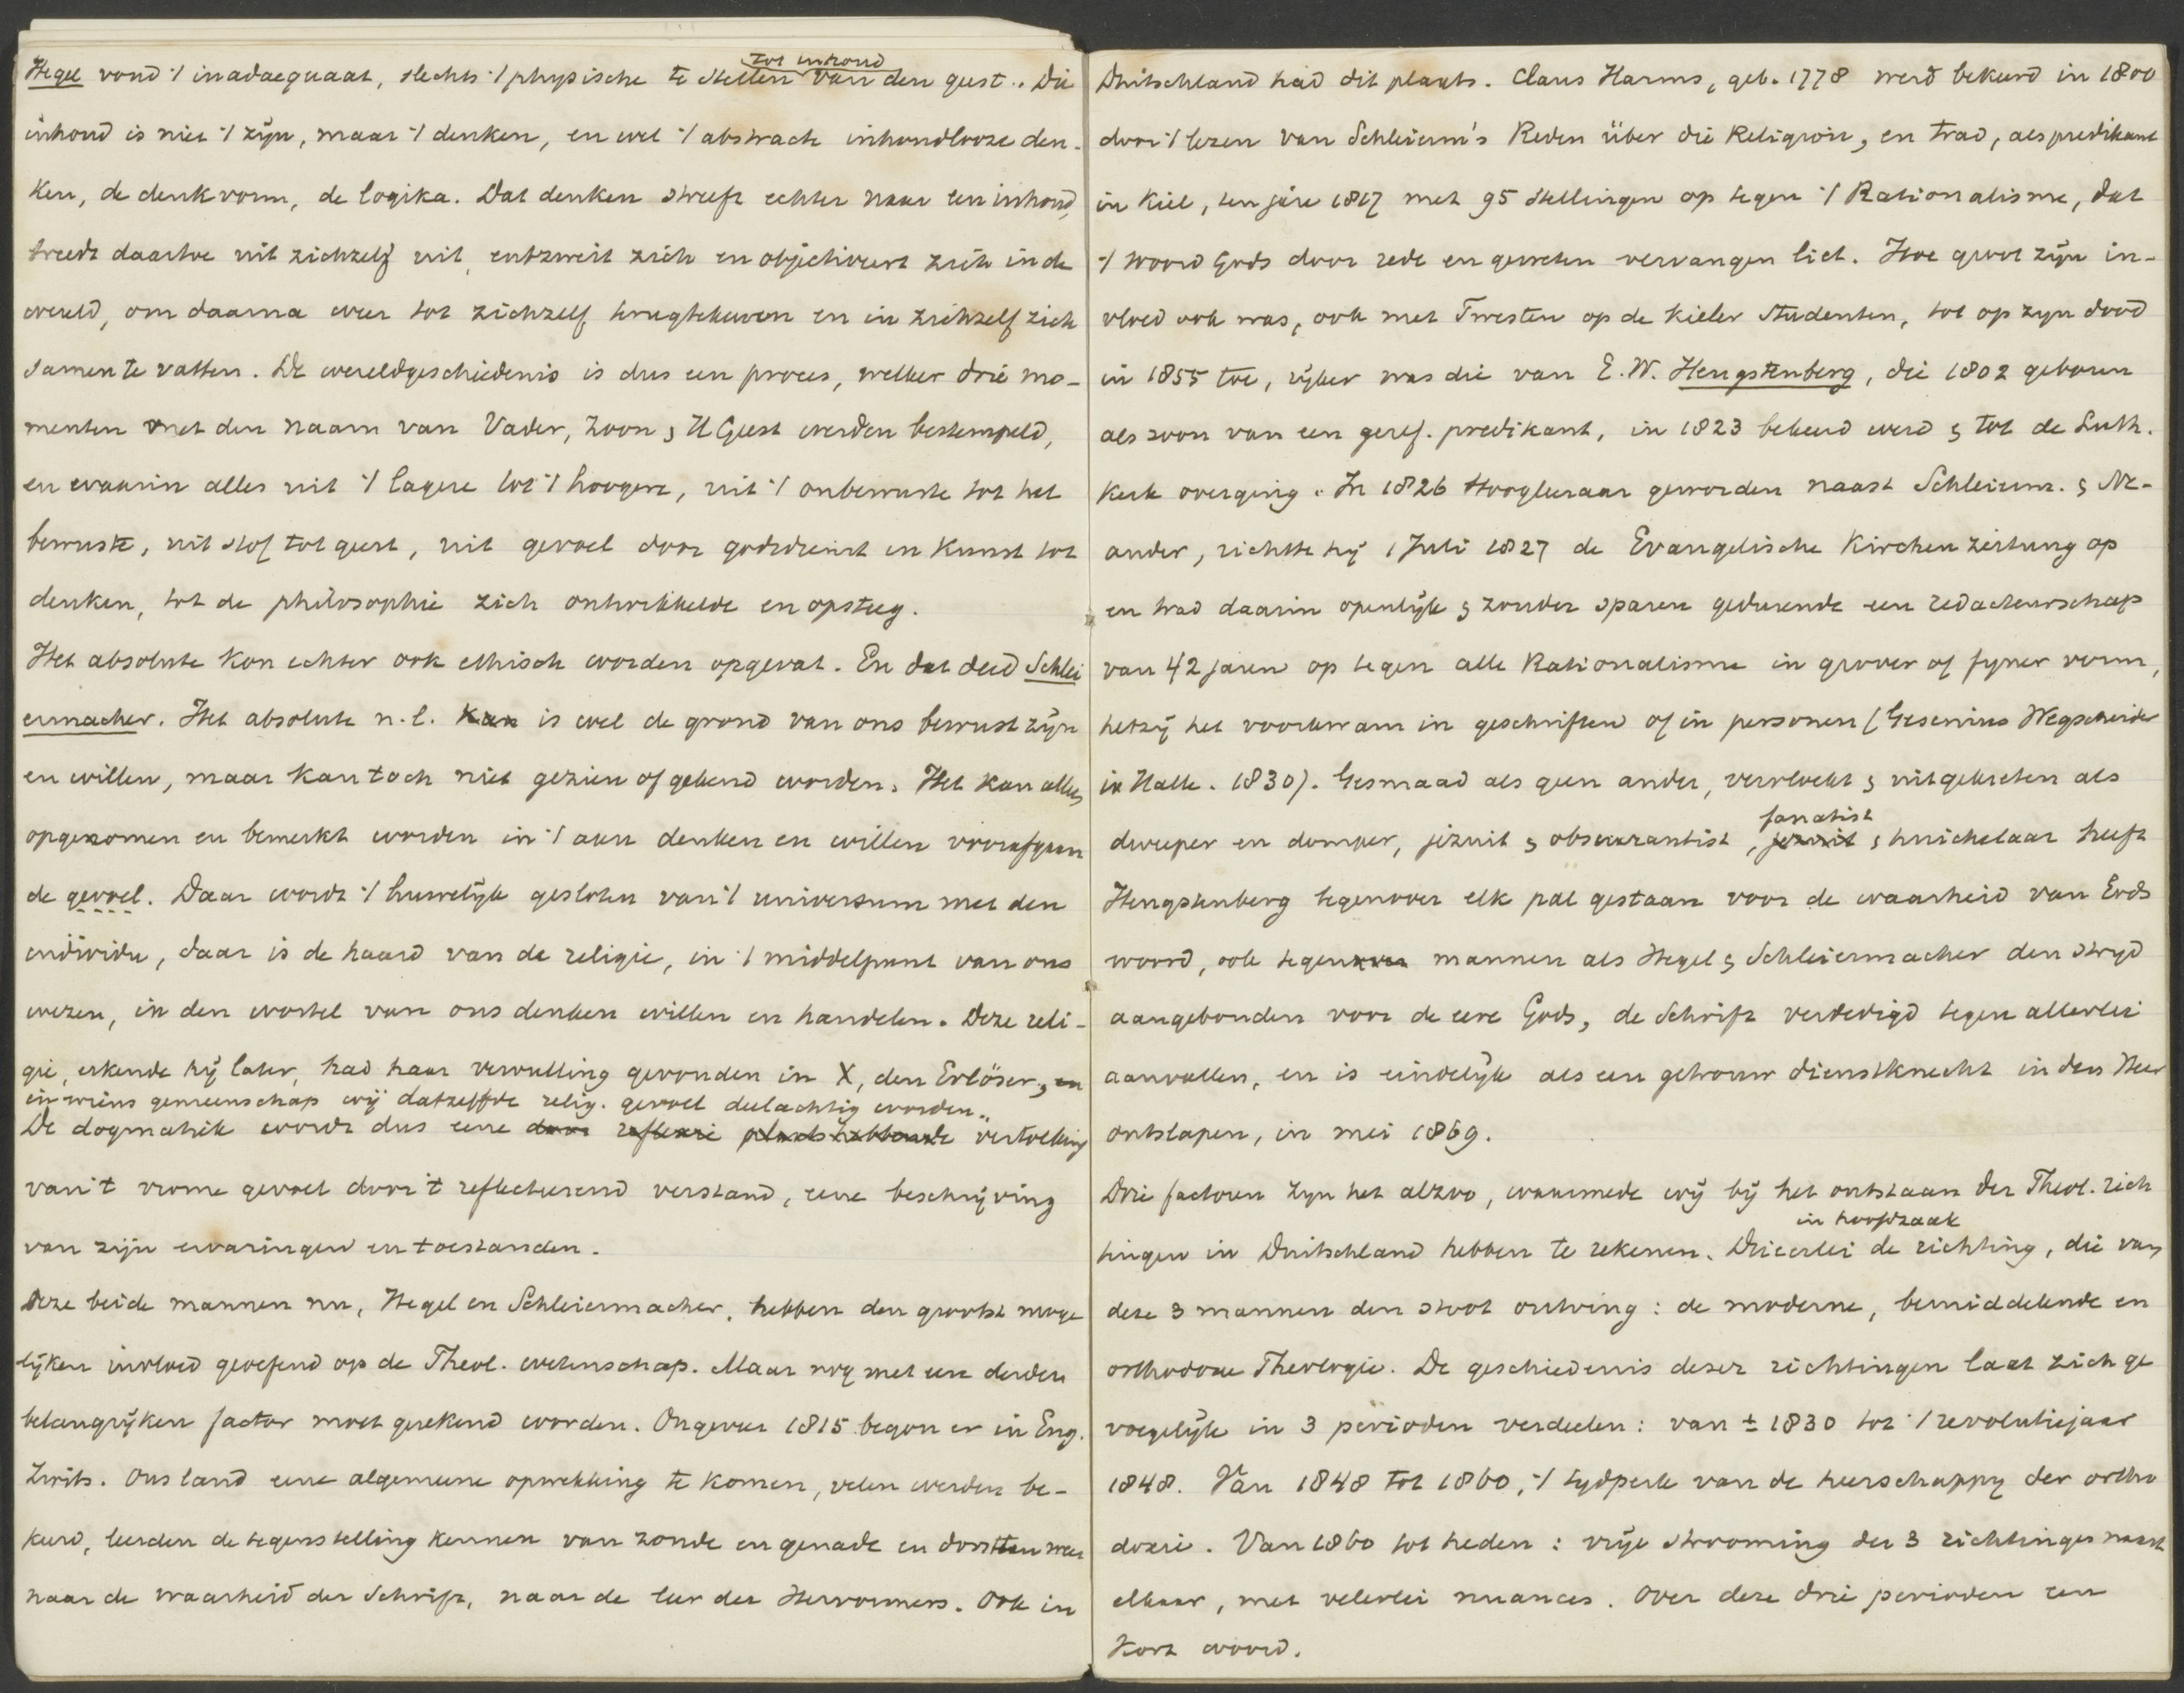 tot inhoud
Hegel vond 't inadaequaat, slechts 't physische te stellen van den geest. Die
inhoud is niet 't zijn, maar 't denken, en wel 't abstracte inhoudlooze den-
ken, de denkvorm, de logika. Dat denken streeft echter naar een inhoud,
treedt daartoe uit zichzelf uit, entzweit zich en objectiveert zich in de
wereld, om daarna weer tot zichzelf terugtekeeren en in zichzelf zich
samen te vatten. De wereldgeschiedenis is dus een proces, welker drie mo-
menten met den naam van Vader, Zoon & H Geest werden bestempeld,
en waarin alles uit 't lagere tot 't hoogere, uit 't onbewuste tot het
bewuste, uit stof tot geest, uit gevoel door godsdienst en kunst tot
denken, tot de philosophie zich ontwikkelde en opsteeg.
Het absolute kon echter ook ethisch worden opgevat. En dat deed Schlei
ermacher. Het absolute n.l. kan is wel de grond van ons bewust zijn
en willen, maar kan toch niet gezien of gekend worden. Het kan alleen
opgenomen en bemerkt worden in 't aan denken en willen voorafgaan
de gevoel. Daar wordt 't huwelijk gesloten van 't universum met den
individu, daar is de haard van de religie, in 't middelpunt van ons
wezen, in den wortel van ons denken willen en handelen. Deze reli-
gie, erkende hij later, had haar vervulling gevonden in X, den Erlöser, en
in wiens gemeenschap wij datzelfde relig. gevoel deelachtig worden.
De dogmatiek wordt dus eene door reflexie plaatshebbende vertolking
van 't vrome gevoel door 't reflecteerend verstand, eene beschrijving
van zijn ervaringen en toestanden.
Deze beide mannen nu, Hegel en Schleiermacher, hebben den grootst moge
lijken invloed geoefend op de Theol. wetenschap. Maar nog met een derden
belangrijken factor moet gerekend worden. Ongeveer 1815 begon er in Eng.
Zwits. Ons land eene algemeene opwekking te komen, velen werden be-
keerd, leerden de tegenstelling kennen van zonde en genade en dorstten weer
naar de waarheid der Schrift, naar de leer der Hervormers. Ook in
Duitschland had dit plaats. Claus Harms, geb. 1778 werd bekeerd in 1800
door 't lezen van Schleierm's Reden über die Religion, en trad, als predikant
in Kiel, ten jare 1817 met 95 stellingen op tegen 't Rationalisme, dat
't Woord Gods door rede en geweten vervangen liet. Hoe groot zijn in-
vloed ook was, ook met Twesten op de Kieler studenten, tot op zyn dood
in 1855 toe, rijker was die van E.W. Hengstenberg, die 1802 geboren
als zoon van een geref. predikant, in 1823 bekeerd werd & tot de Luth.
Kerk overging. In 1826 Hoogleeraar geworden naast Schleierm. & Ne-
ander, richtte hij 1 Juli 1827 de Evangelische Kirchenzeitung op
en trad daarin openlijk & zonder sparen gedurende een redacteurschap
van 42 jaren op tegen alle Rationalisme in grover of fyner vorm,
hetzij het voorkwam in geschriften of in personen (Gesenius Wegscheider
in Halle. 1830). Gesmaad als geen ander, vervloekt & uitgekreten als
fanatist
dweeper en domper, jezuit & obscurantist, jezuit & huichelaar heeft
Hengstenberg tegenover elk pal gestaan voor de waarheid van Gods
woord, ook tegenover mannen als Hegel & Schleiermacher den stryd
aangebonden voor de eere Gods, de Schrift verdedigd tegen allerlei
aanvallen, en is eindelijk als een getrouw dienstknecht in den Heer
ontslapen, in mei 1869.
Drie factoren zyn het alzoo, waarmede wij bij het ontstaan der Theol. rich
in hoofdzaak
tingen in Duitschland hebben te rekenen. Drieerlei de richting, die van
deze 3 mannen den stoot ontving: de moderne, bemiddelende en
orthodoxe Theologie. De geschiedenis dezer richtingen laat zich ge
voegelijk in 3 perioden verdeelen: van ± 1830 tot 't revolutiejaar
1848. Van 1848 tot 1860, 't tydperk van de heerschappy der ortho
doxie. Van 1860 tot heden: vrije strooming der 3 richtingen naast
elkaar, met velerlei nuances. Over deze drie perioden een
kort woord.